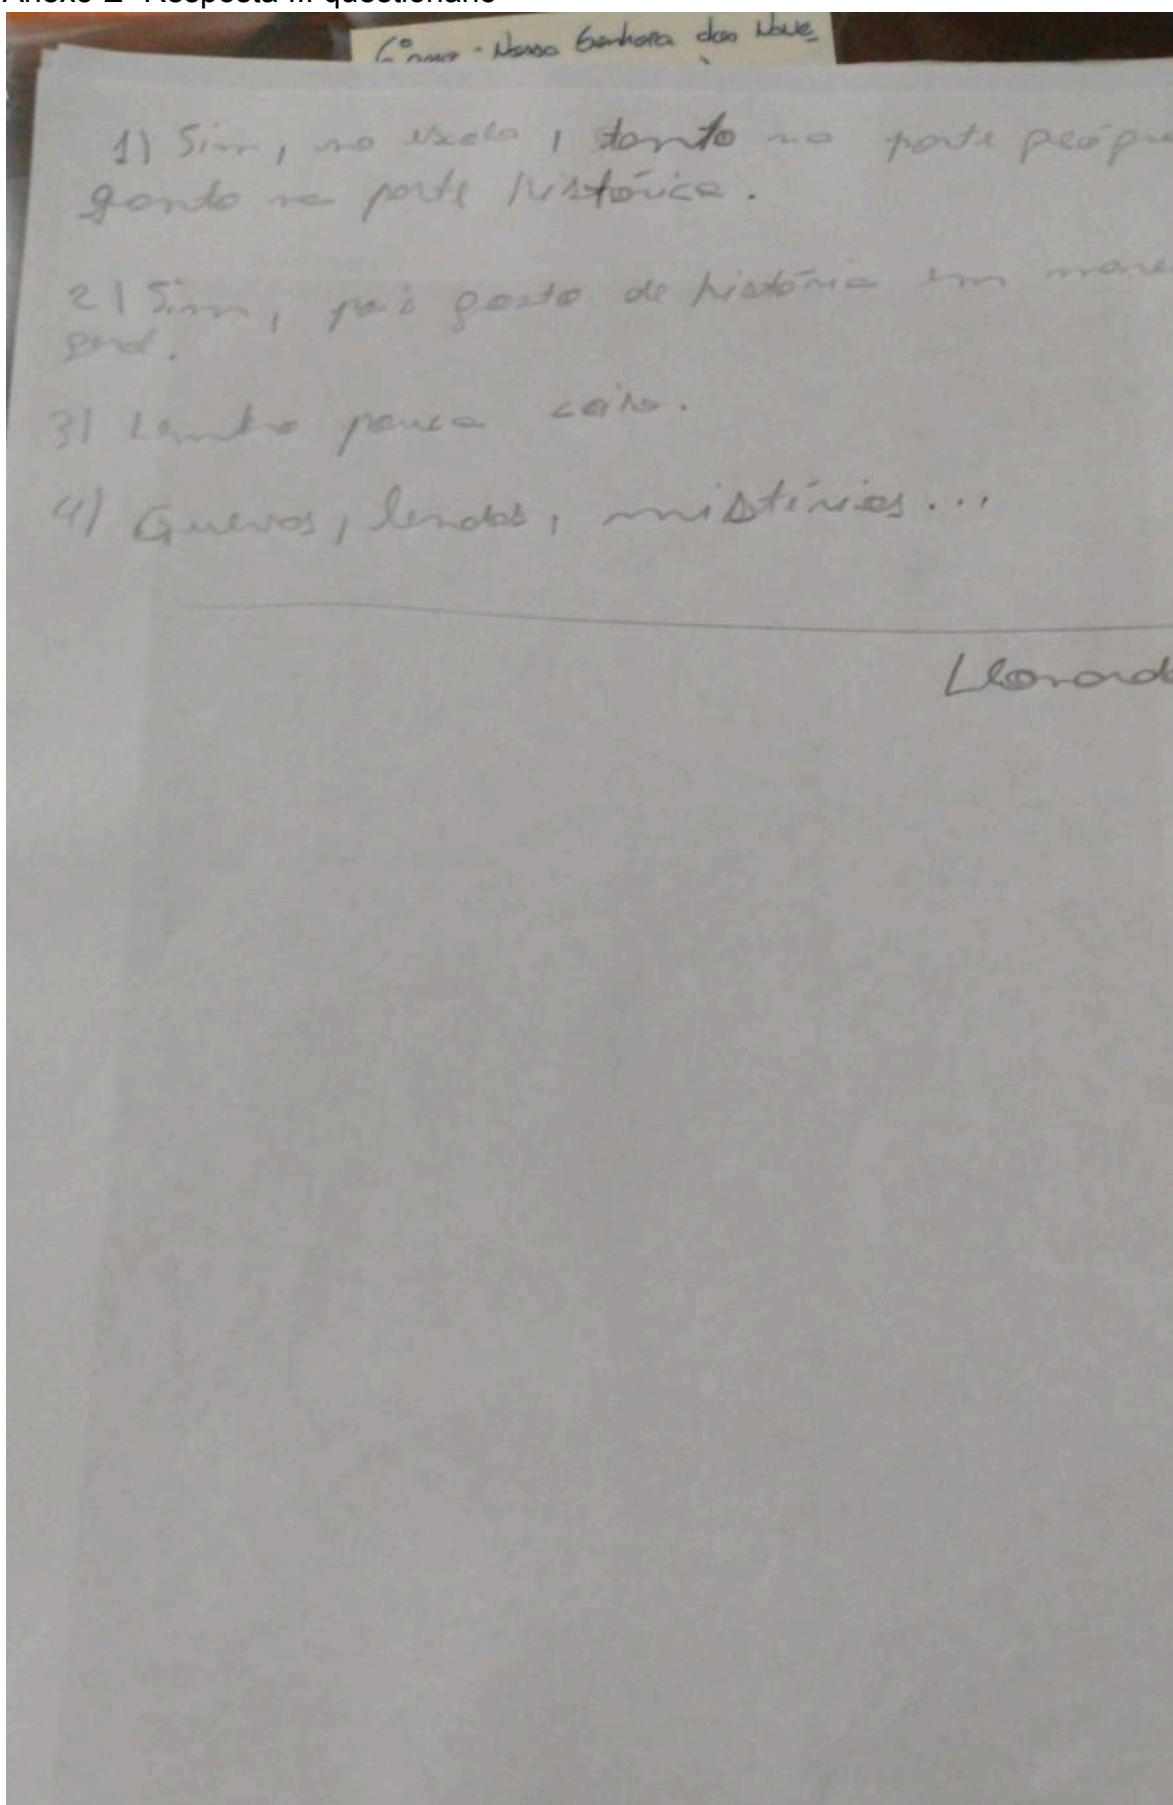 6º ano - Nossa Senhora das Neve
1) Sim, na escola, tanto na parte
quanto na parte histórica.
2) Sim, pois gosto de história em
geral.
3) Lembro pouca coisa.
4) Guerras, lendas, mistérios...